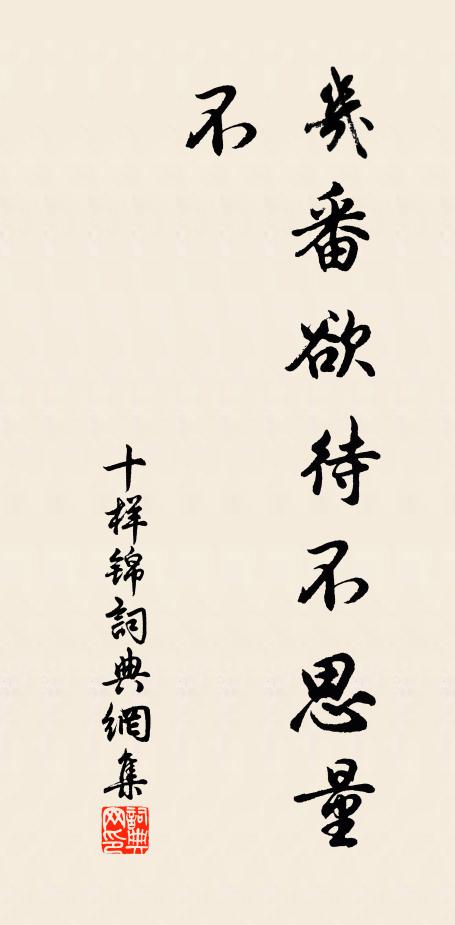 幾番欲待不思量
不
十样锦詞典網集
詞典网印